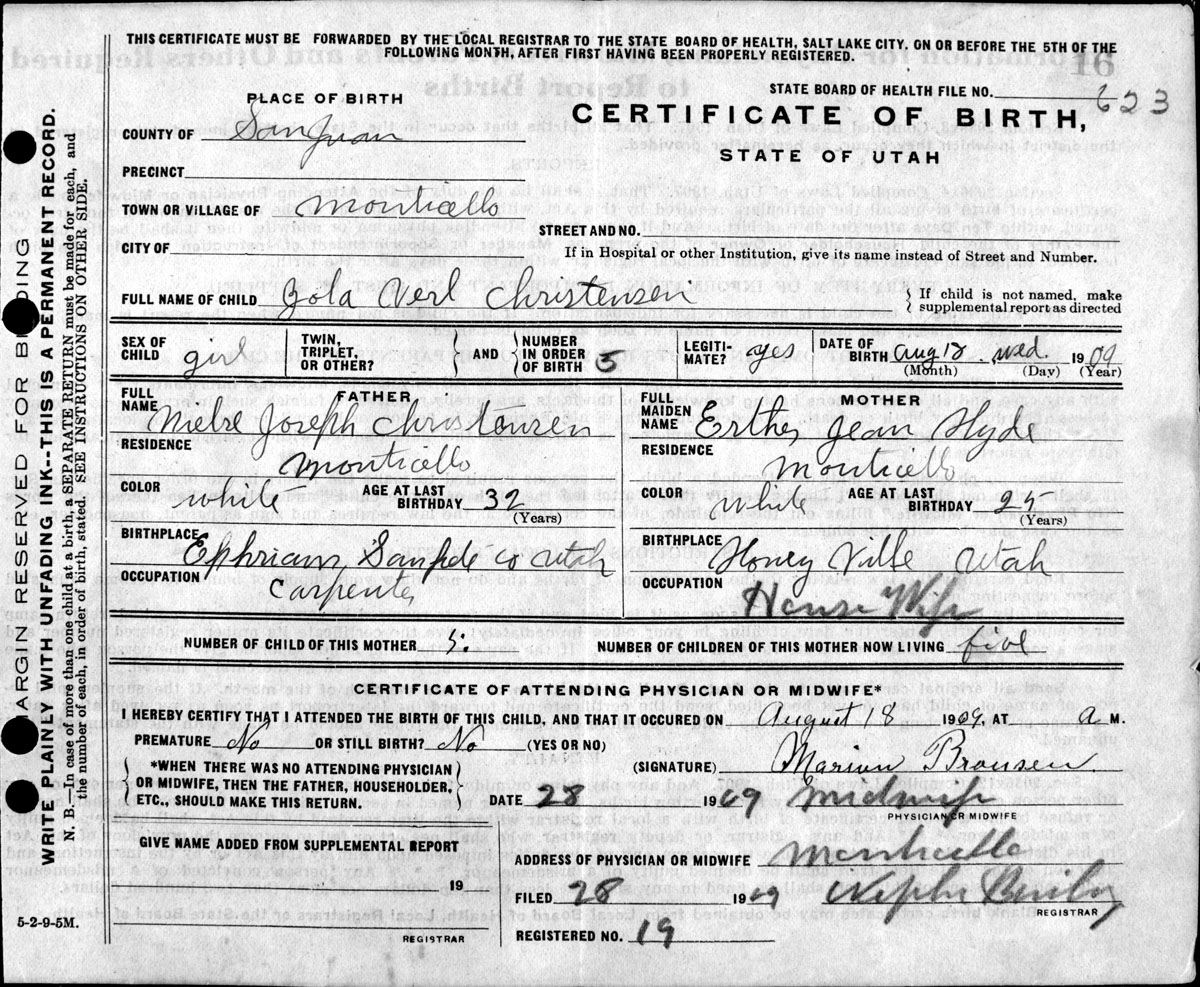 THIS CERTIFICATE MUST BE FORWARDED BY THE LOCAL REGISTRAR TO THE STATE BOARD OF HEALTH, SALT LAKE CITY, ON OR BEFORE THE 5TH OF THE
FOLLOWING MONTH, AFTER FIRST HAVING BEEN PROPERLY REGISTERED.
STATE BOARD OF HEALTH FILE NO. 623
PLACE OF BIRTH
CERTIFICATE OF BIRTH,
STATE OF UTAH
COUNTY OF San Juan
PRECINCT
TOWN OR VILLAGE OF Monticello
STREET AND NO.
CITY OF
If in Hospital or other Institution, give its name instead of Street and Number.
FULL NAME OF CHILD Zola Verl Christensen
If child is not named, make
supplemental report as directed
SEX OF CHILD girl
TWIN, TRIPLET, OR OTHER?
AND
NUMBER IN ORDER OF BIRTH 5
LEGITI-MATE? yes
DATE OF BIRTH Aug 18 wed. 1909
(Month) (Day) (Year)
FATHER
FULL NAME Joseph Christensen
RESIDENCE Monticello
COLOR white AGE AT LAST BIRTHDAY 32
(Years)
BIRTHPLACE Ephriam, Sanpde co Utah
OCCUPATION Carpenter
MOTHER
FULL MAIDEN NAME Esther Jean Hyde
RESIDENCE Monticello
COLOR white AGE AT LAST BIRTHDAY 25
(Years)
BIRTHPLACE Honey Ville Utah
OCCUPATION House Wife
NUMBER OF CHILD OF THIS MOTHER 5. NUMBER OF CHILDREN OF THIS MOTHER NOW LIVING five
CERTIFICATE OF ATTENDING PHYSICIAN OR MIDWIFE*
I HEREBY CERTIFY THAT I ATTENDED THE BIRTH OF THIS CHILD, AND THAT IT OCCURED ON August 18 1909, AT a M.
PREMATURE No OR STILL BIRTH? No (YES OR NO)
(SIGNATURE) Marion Bronsen
*WHEN THERE WAS NO ATTENDING PHYSICIAN
OR MIDWIFE, THEN THE FATHER, HOUSEHOLDER,
ETC., SHOULD MAKE THIS RETURN.
DATE 28 1909 Midwife
PHYSICIAN OR MIDWIFE
GIVE NAME ADDED FROM SUPPLEMENTAL REPORT
19
REGISTRAR
ADDRESS OF PHYSICIAN OR MIDWIFE Monticello
FILED 28 1909 Nephi Bailey
REGISTRAR
REGISTERED NO. 19
5-2-9-5M.
MARGIN RESERVED FOR BINDING
WRITE PLAINLY WITH UNFADING INK--THIS IS A PERMANENT RECORD.
N. B.—In case of more than one child at a birth, a SEPARATE RETURN must be made for each, and
the number of each, in order of birth, stated. SEE INSTRUCTIONS ON OTHER SIDE.